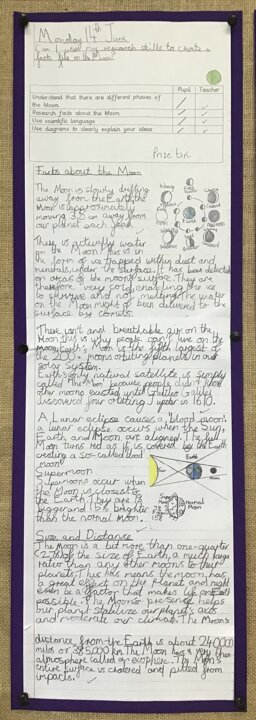 Monday 14th June
Can I use my research skills to create a
fact file on the Moon?
Pupil Teacher
Understand that there are different phases of
the Moon.
Research facts about the Moon
Use scientific language
Use diagrams to clearly explain your ideas
Facts about the Moon
The Moon is slowly drifting
away from the Earth. The
Moon is approximately
moving 3.8 cm away from
our planet each year.
There is actually water
on the Moon. This is in
the form of ice trapped within dust and
minerals under the surface. It has been detected
on areas of the moon's surface. They are
therefore very cold, enabling the ice
to survive and not melting. The water
on the Moon might of been delivered to the
surface by comets.
There isn't and breathable air on the
Moon this is why people can't live on the
moon. Earth's Moon is the fifth largest of
the moons orbiting planets in our
solar system.
Earth's only natural satellite is simply
called The Moon because people didn't know
other moons existed until Galileo Galilei
discovered four orbiting Jupiter in 1610.
A Lunar eclipse causes a 'blood moon'
a lunar eclipse occurs when the Sun,
Earth and Moon are aligned. The full
Moon turns red as it is covered by the Earth
creating a so-called blood
moon.
Earth
Moon
Supermoon
Supermoons occur when
the Moon is closest to
the Earth. They are
bigger and 15% brighter
than the normal Moon.
Normal
Moon
Size and Distance
The Moon is a bit more than one-quarter
(27%) of the size of Earth, a much larger
ratio than any other moons to their
planets. This has means the moon has
a great effect on the Planet and might
even be a factor that makes life on Earth
possible. The Moon's presence helps
our planet stabilize our planet's axis
and moderate our climate. The Moon's
distance from the Earth is about 240,000
miles or 385,000 km. The Moon has a very thin
atmosphere called an exosphere. The Moon's
entire surface is cratered and pitted from
impacts.